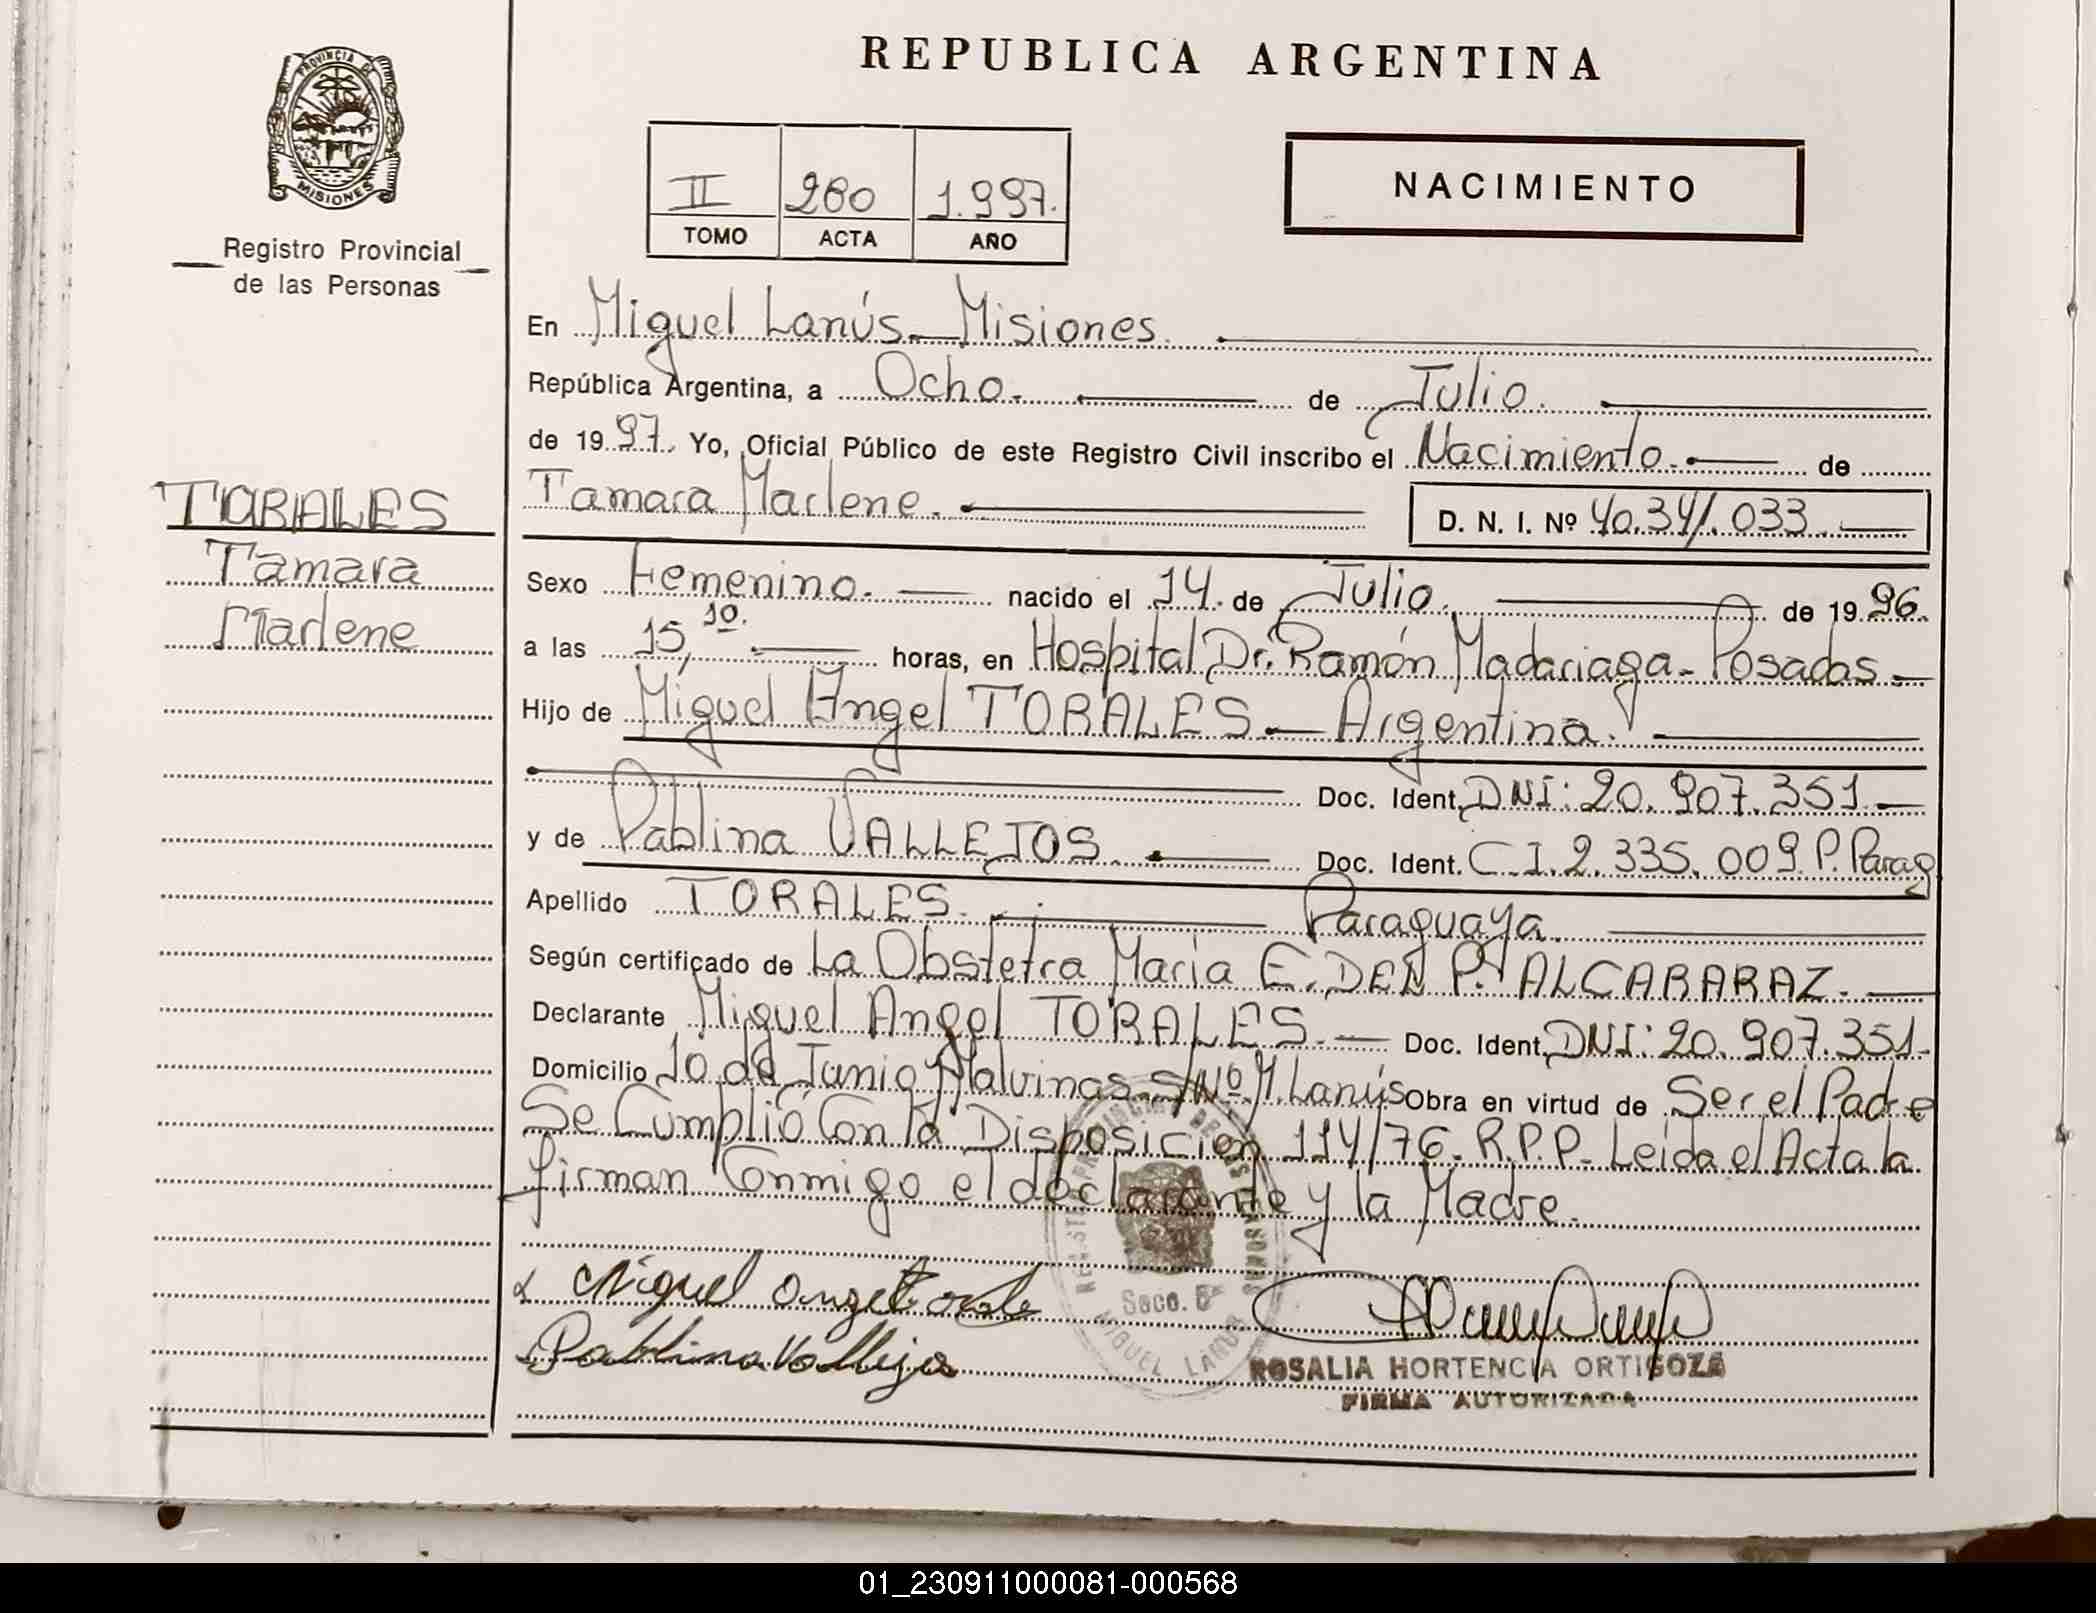 REPUBLICA ARGENTINA
PROVINCIA DE
MISIONES
Registro Provincial
de las Personas
II 280 1.997.
TOMO ACTA AÑO
NACIMIENTO
En Miguel Lanús - Misiones.
República Argentina, a Ocho. de Julio.
de 1997. Yo, Oficial Público de este Registro Civil inscribo el Nacimiento. de
Tamara Marlene. D. N. I. Nº 40.341.033
TORALES
Tamara
Marlene
Sexo Femenino. nacido el 14. de Julio. de 1996.
a las 15,10. horas, en Hospital Dr. Ramón Madariaga - Posadas
Hijo de Miguel Angel TORALES - Argentina.
Doc. Ident. DNI: 20.907.351
y de Pablina VALLEJOS. Doc. Ident. C.I. 2.335.009 P. Parag
Apellido TORALES. Paraguaya.
Según certificado de La Obstetra María E. DEL P. ALCARARAZ.
Declarante Miguel Angel TORALES. Doc. Ident. DNI: 20.907.351.
Domicilio 10 de Junio y Malvinas S/Nº M. Lanús Obra en virtud de Ser el Padre
Se Cumplió Con la Disposicion 114/76. R.P.P. Leida el Acta la
firman Conmigo el declarante y la Madre.
Miguel Angel Torales
Pablina Vallejo
Secc. 6ª
MIGUEL LANUS
ROSALIA HORTENCIA ORTIGOZA
FIRMA AUTORIZADA
01_230911000081-000568